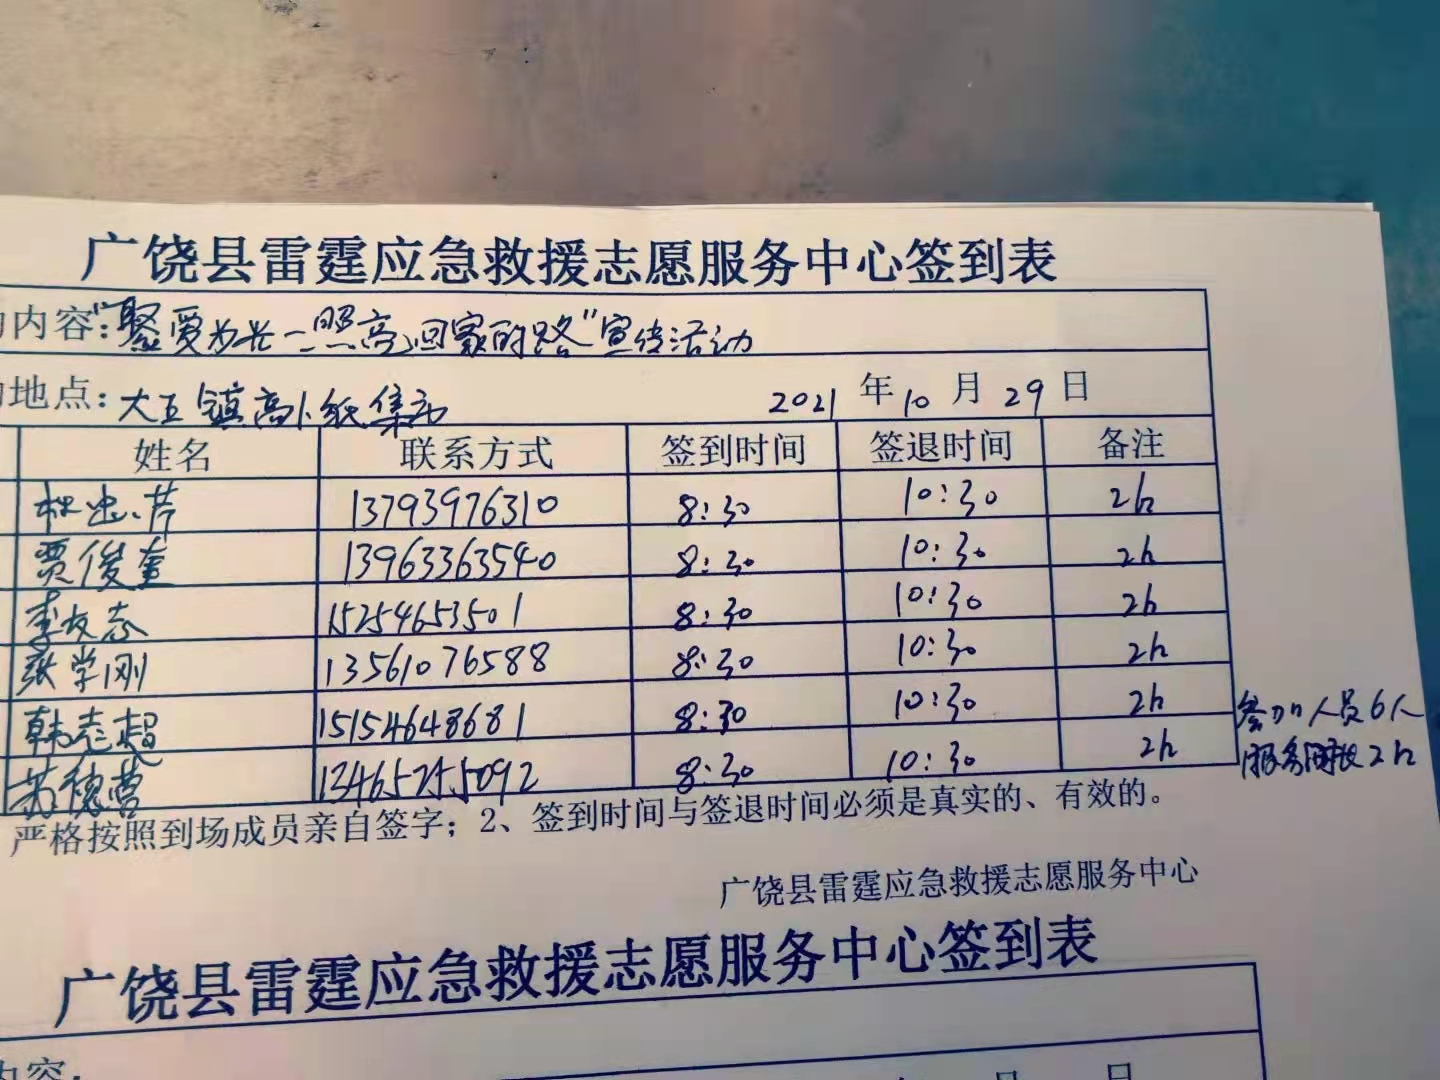 广饶县雷霆应急救援志愿服务中心签到表
内容:"聚爱为光—照亮回家的路"宣传活动
地点: 大王镇高卜纸集市 2021 年 10 月 29 日
姓名 联系方式 签到时间 签退时间 备注
13793976310 8:30 10:30 2h
贾俊奎 13963363540 8:30 10:30 2h
李友志 15254653501 8:30 10:30 2h
张学刚 13561076588 8:30 10:30 2h
韩志超 15154648681 8:30 10:30 2h 参加人员6人
苏穗营 13465255092 8:30 10:30 2h 服务时长2h
严格按照到场成员亲自签字；2、签到时间与签退时间必须是真实的、有效的。
广饶县雷霆应急救援志愿服务中心
广饶县雷霆应急救援志愿服务中心签到表
内容:
月 日